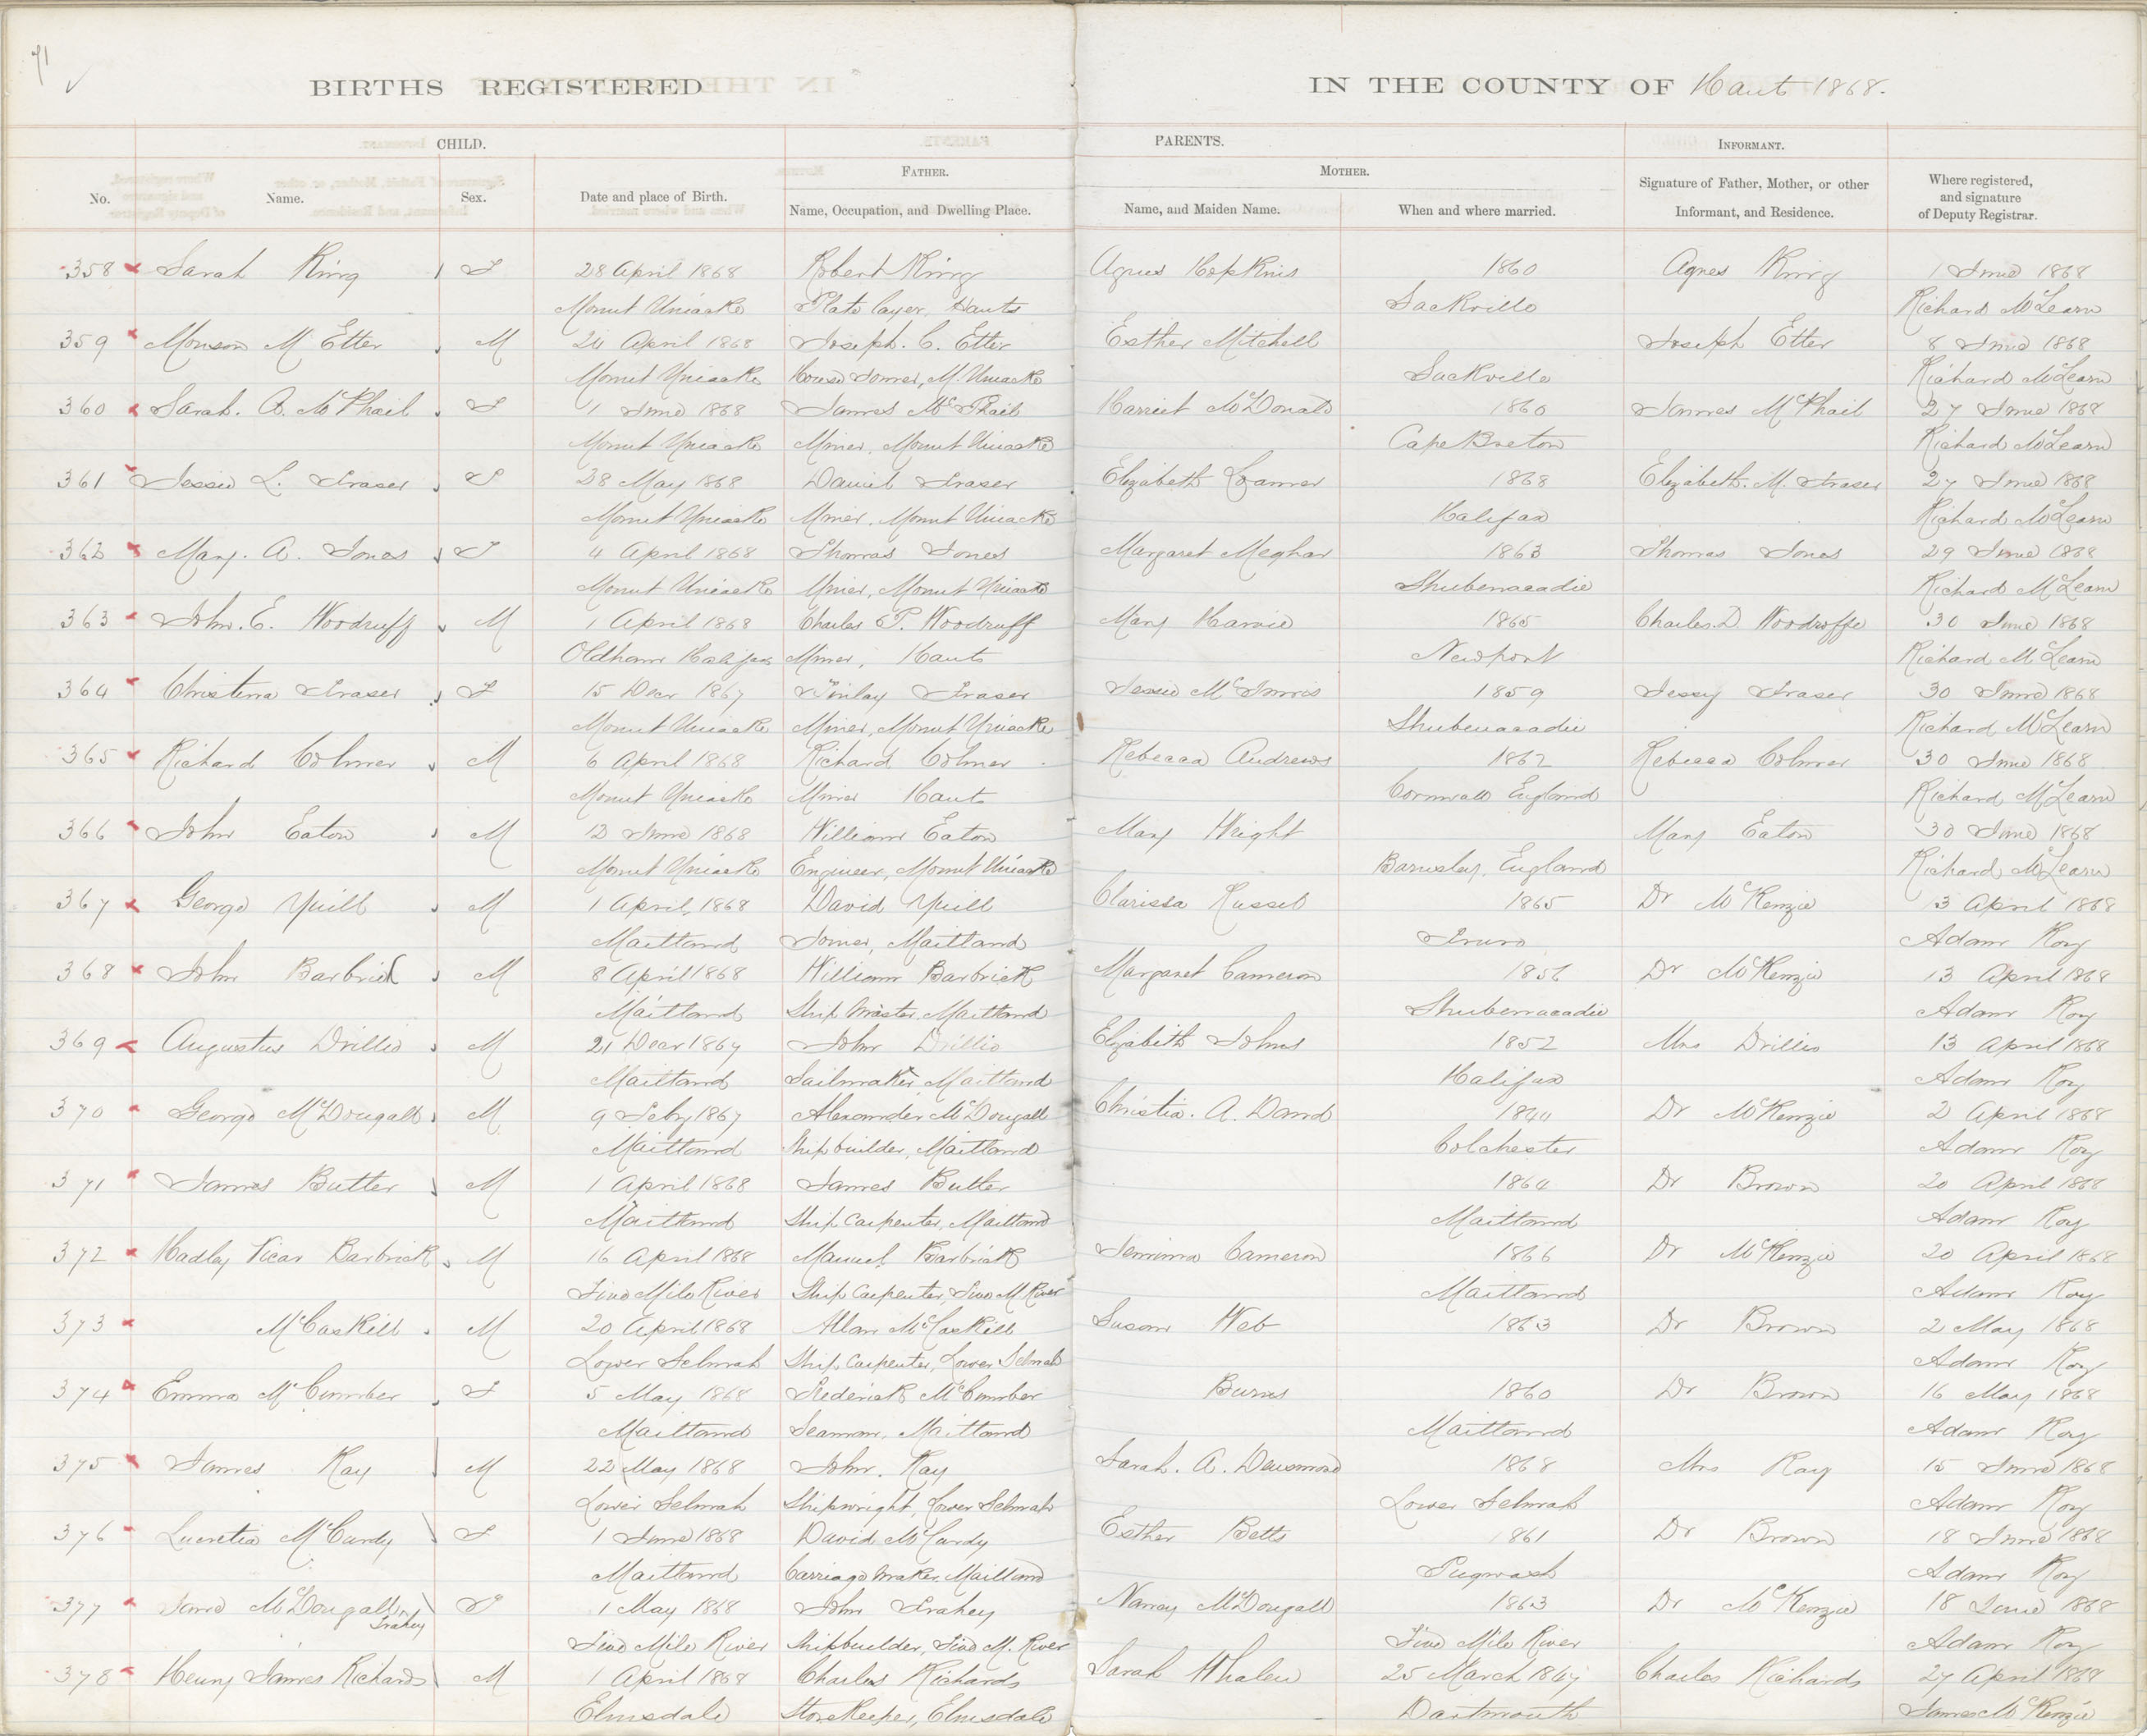 71
BIRTHS REGISTERED IN THE COUNTY OF Hants 1868.
CHILD. PARENTS. INFORMANT.
FATHER. MOTHER.
No. Name. Sex. Date and place of Birth. Name, Occupation, and Dwelling Place. Name, and Maiden Name. When and where married. Signature of Father, Mother, or other Informant, and Residence. Where registered, and signature of Deputy Registrar.
358 Sarah King F 28 April 1868 Robert King Agnes Hopkins 1860 Agnes King 1 June 1868
Mount Uniacke Plate layer, Hants Sackville Richard McLearn
359 M Etter M 24 April 1868 Joseph. C. Etter Esther Mitchell Joseph Etter 8 June 1868
Mount Uniacke House Joiner, M. Uniacke Sackville Richard McLearn
360 Sarah. A. McPhail F 1 June 1868 James McPhail Harriet McDonald 1860 James McPhail 27 June 1868
Mount Uniacke Miner, Mount Uniacke Cape Breton Richard McLearn
361 Jessie L. Fraser F 28 May 1868 Daniel Fraser Elizabeth 1868 Elizabeth. M. Fraser 27 June 1868
Mount Uniacke Miner, Mount Uniacke Halifax Richard McLearn
362 Mary. A. Jones F 4 April 1868 Thomas Jones Margaret Meghar 1863 Thomas Jones 29 June 1868
Mount Uniacke Miner, Mount Uniacke Shubenacadie Richard McLearn
363 John. E. Woodruff M 1 April 1868 Charles P. Woodruff Mary Harvie 1865 Charles. D. Woodroffe 30 June 1868
Oldham Halifax Miner, Hants Newport Richard McLearn
364 Christena Fraser F 15 Decr 1867 Finlay Fraser Jessie McInnis 1859 Jessy Fraser 30 June 1868
Mount Uniacke Miner, Mount Uniacke Shubenacadie Richard McLearn
365 Richard Colmer M 6 April 1868 Richard Colmer Rebecca Andrews 1862 Rebecca Colmer 30 June 1868
Mount Uniacke Miner Hants Cornwall England Richard McLearn
366 John Eaton M 12 June 1868 William Eaton Mary Wright Mary Eaton 30 June 1868
Mount Uniacke Engineer, Mount Uniacke Barnsley, England Richard McLearn
367 George Yuill M 1 April, 1868 David Yuill Clarissa Russel 1865 Dr McKenzie 13 April 1868
Maitland Joiner, Maitland Truro Adam Roy
368 John Barbrick M 8 April 1868 William Barbrick Margaret Cameron 1856 Dr McKenzie 13 April 1868
Maitland Ship Master, Maitland Shubenacadie Adam Roy
369 Augustus Drillio M 21 Decr 1867 John Drillio Elizabeth Johns 1852 Mrs Drillio 13 April 1868
Maitland Sailmaker Maitland Halifax Adam Roy
370 George McDougall M 9 Feby 1867 Alexander McDougall Christia. A. David 1844 Dr McKenzie 2 April 1868
Maitland Shipbuilder, Maitland Colchester Adam Roy
371 James Butler M 1 April 1868 James Butler 1864 Dr Brown 20 April 1868
Maitland Ship Carpenter, Maitland Maitland Adam Roy
372 Hadley Vicar Barbrick M 16 April 1868 Manuel Barbrick Jemima Cameron 1866 Dr McKenzie 20 April 1868
Five Mile River Ship Carpenter, Five M River Maitland Adam Roy
373 McCaskill M 20 April 1868 Allan McCaskill Susan Web 1863 Dr Brown 2 May 1868
Lower Selmah Ship Carpenter, Lower Selmah Adam Roy
374 Emma McCumber F 5 May 1868 Frederick McCumber Burns 1860 Dr Brown 16 May 1868
Maitland Seaman, Maitland Maitland Adam Roy
375 James Ray M 22 May 1868 John. Ray Sarah. A. Densmore 1868 Mrs Ray 15 June 1868
Lower Selmah Shipwright, Lower Selmah Lower Selmah Adam Roy
376 Lucretia McCurdy F 1 June 1868 David McCurdy Esther Betts 1861 Dr Brown 18 June 1868
Maitland Carriage Maker, Maitland Pugwash Adam Roy
377 Jane McDougall Frahey F 1 May 1868 John Frahey Nancy McDougall 1863 Dr McKenzie 18 June 1868
Five Mile River Shipbuilder, Five M. River Five Mile River Adam Roy
378 Henry James Richards M 1 April 1868 Charles Richards Sarah Whalen 25 March 1867 Charles Richards 27 April 1868
Elmsdale Storekeeper, Elmsdale Dartmouth James McKenzie